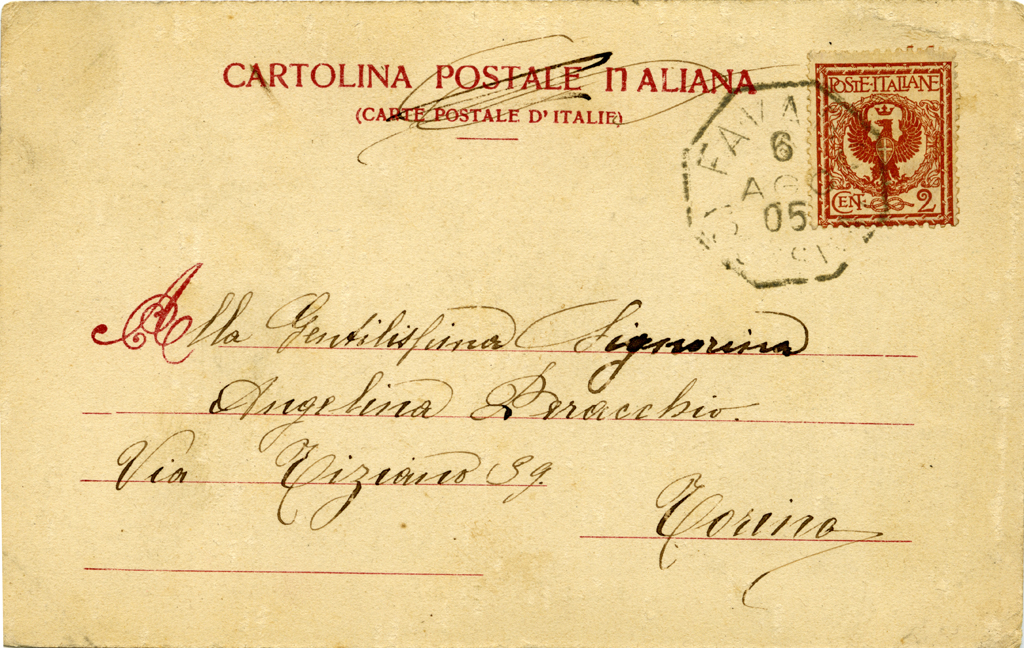 CARTOLINA POSTALE ITALIANA
(CARTE POSTALE D'ITALIE)
POSTE·ITALIANE
CEN. 2
FAVA
6
AGO
05
Alla Gentilissima Signorina
Angelina Peracchio.
Via Tiziano 39.
Torino